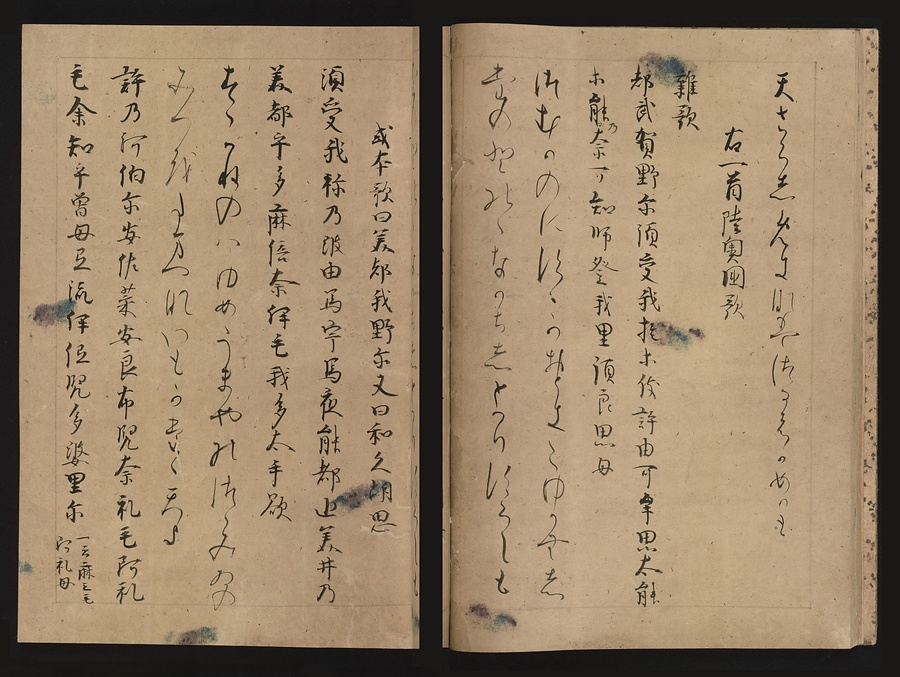 右一首陸奥國歌
雜歌
都武賀野尓須受我於等伎許由可牟思太能
等能乃奈可知師登我里須良思母
つむかのにすゝかおときこゆかむし
たのとのゝなかちしとかりすらしも
或本歌曰美都我野尓又曰和久胡思
須受我祢乃波由馬宇馬夜能都追美井乃
美都乎多麻倍奈伊毛我多太手欲
すゝかねのはゆめうまやのつゝみゐの
みつをたまへないもかたゝて
許乃河伯尓安佐菜安良布兒奈礼毛阿礼
毛余知乎曽母弖流伊低兒多婆里尓 一云麻之毛
阿礼母